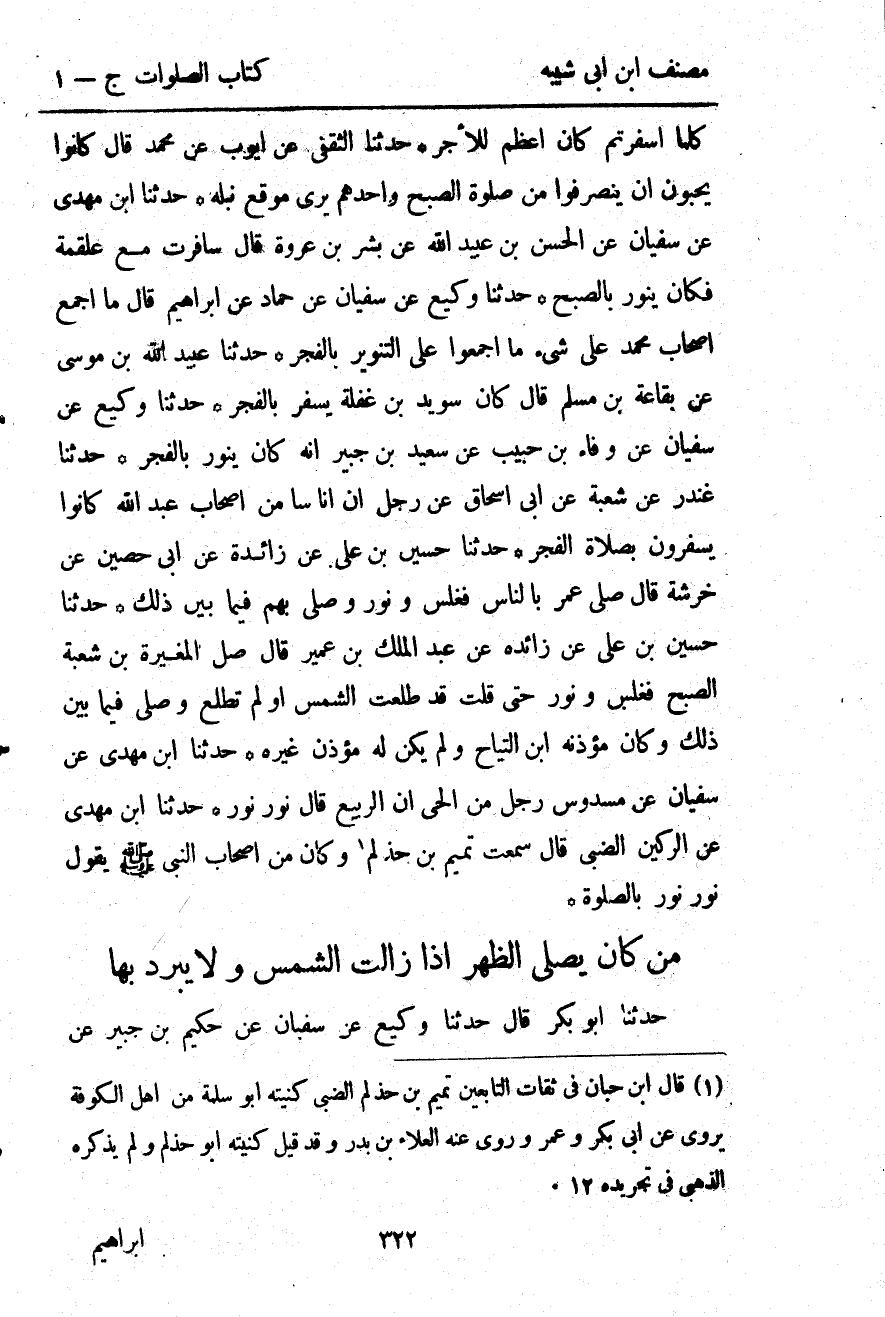 مصنف ابن ابى شيبه
كتاب الصلوات ج — ١
كلما اسفرتم كان اعظم للأجر * حدثنا الثقفى عن ايوب عن محمد قال كانوا
يحبون ان ينصرفوا من صلوة الصبح واحدهم يرى موقع نبله * حدثنا ابن مهدى
عن سفيان عن الحسن بن عبيد الله عن بشر بن عروة قال سافرت مـع علقمة
فكان ينور بالصبح * حدثنا وكيع عن سفيان عن حماد عن ابراهيم قال ما اجمع
اصحاب محمد على شىء ما اجمعوا على التنوير بالفجر * حدثنا عبيد الله بن موسى
عن بقاعة بن مسلم قال كان سويد بن غفلة يسفر بالفجر * حدثنا وكيع عن
سفيان عن وفاء بن حبيب عن سعيد بن جبير انه كان ينور بالفجر * حدثنا
غندر عن شعبة عن ابى اسحاق عن رجل ان اناسا من اصحاب عبد الله كانوا
يسفرون بصلاة الفجر * حدثنا حسين بن على عن زائـدة عن ابى حصين عن
خرشة قال صلى عمر بالناس فغلس و نور و صلى بهم فيما بين ذلك * حدثنا
حسين بن على عن زائده عن عبد الملك بن عمير قال صل المغـيرة بن شعبة
الصبح فغلس و نور حتى قلت قد طلعت الشمس او لم تطلع و صلى فيما بين
ذلك وكان مؤذنه ابن التياح و لم يكن له مؤذن غيره * حدثنا ابن مهدى عن
سفيان عن مسدوس رجل من الحى ان الربيع قال نور نور * حدثنا ابن مهدى
عن الركين الضبى قال سمعت تميم بن حذلم ١ وكان من اصحاب النبى ﷺ يقول
نور نور بالصلوة *
من كان يصلى الظهر اذا زالت الشمس و لايبرد بها
حدثنا ابو بكر قال حدثنا وكيع عن سفيان عن حكيم بن جبير عن
(١) قال ابن حبان فى ثقات التابعين تميم بن حذلم الضبى كنيته ابو سلمة من اهل الكوفة
يروى عن ابى بكر و عمر و روى عنه العلاء بن بدر و قد قيل كنيته ابو حذلم و لم يذكره
الذهبى فى تجريده ١٢ ٠
٣٢٢
ابراهيم